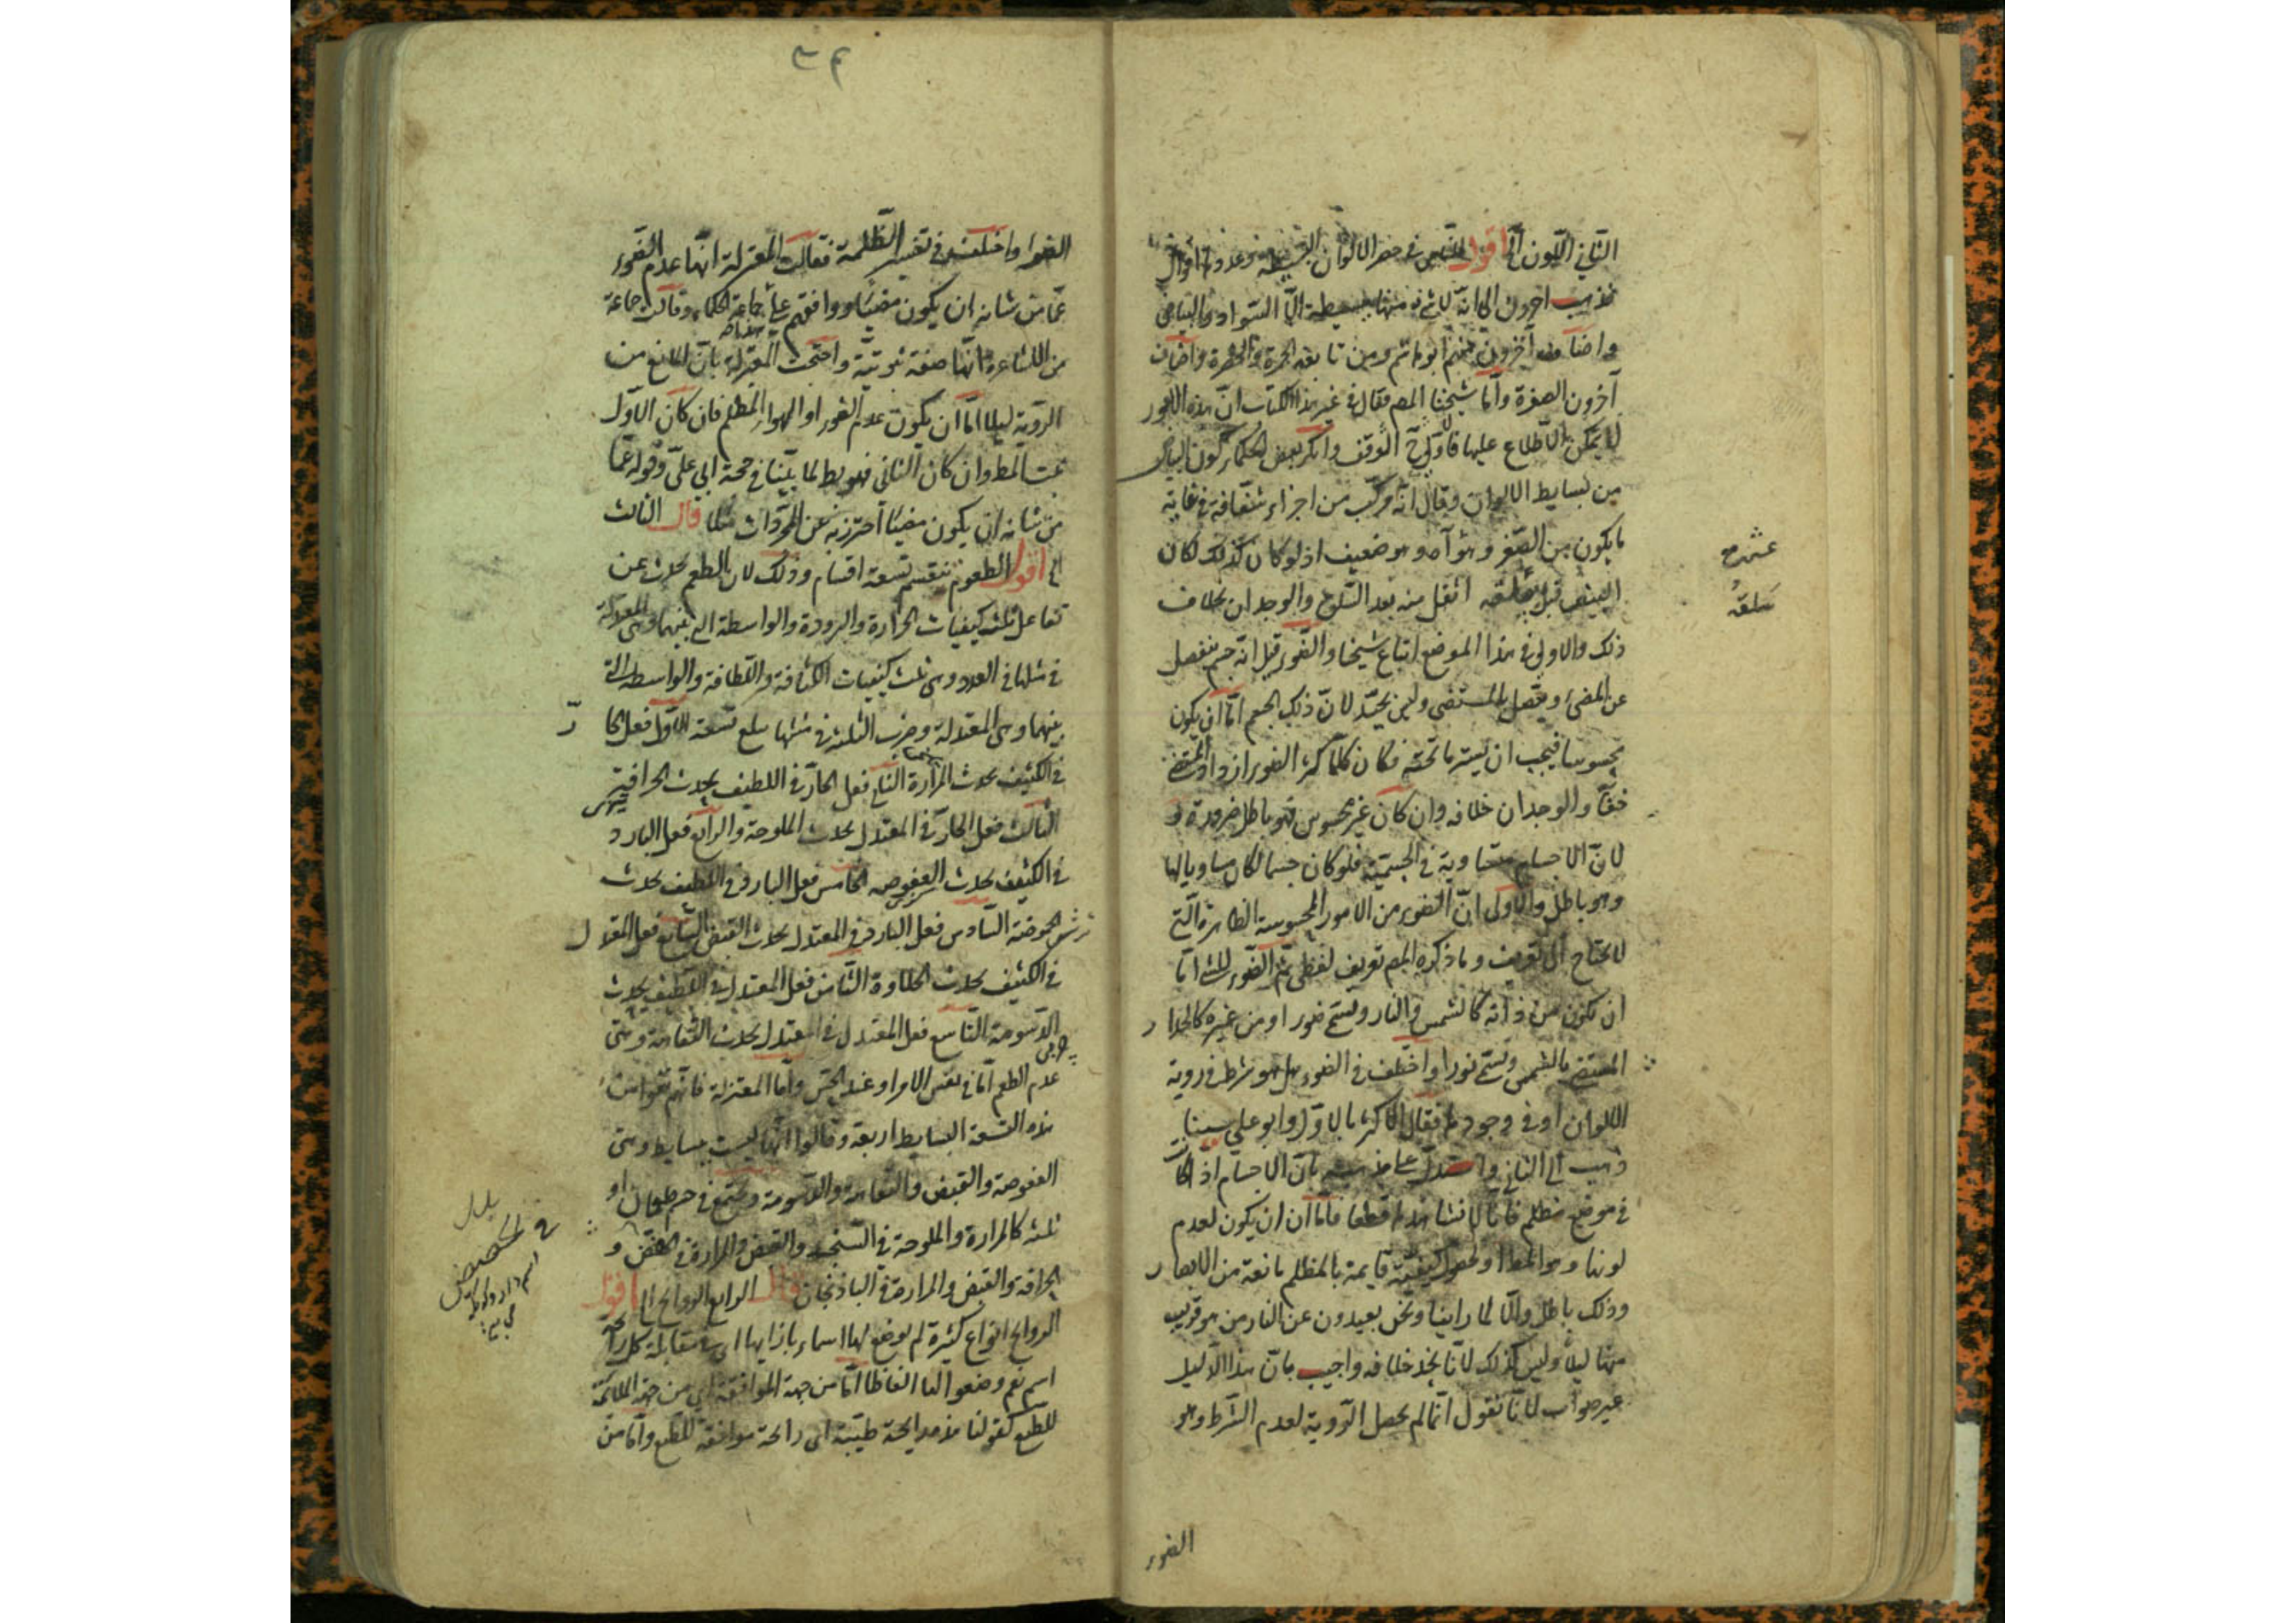 الثاني اللون الى اقول للناس في حصر الالوان البسيطة وعددها اقوال
فذهب اخرون الى انه لا شيء منها بسيطة الا السواد والبياض
واضاف آخرون منهم ابو هاشم ومن تابعه الحمرة والخضرة واضاف
آخرون الصفرة وأما شيخنا المص فقال في غير هذا الكتاب ان هذه الامور
لا يمكن الاطلاع عليها فالاولى الوقف وانكر بعض الحكماء كون البياض
من بسايط الالوان وقال انه مركب من اجزاء شفافة في غاية
ما يكون من الصغر وهواء وهو ضعيف اذ لو كان كذلك لكان
البيض قبل سلقه اثقل منه بعد السلق والوجدان بخلاف
ذلك والاولى في هذا الموضع اتباع شيخنا والضوء قيل انه جسم ينفصل
عن المضيء ويتصل بالمستضيء وليس بجيد لان ذلك الجسم اما ان يكون
محسوسا فيجب ان يستر ما تحته فكان كلما كثر الضوء ازداد المستضيء
خفاء والوجدان خلافه وان كان غير محسوس فهو باطل ضرورة و
لان الاجسام متساوية في الجسمية فلو كان جسما لكان مساويا لها
وهو باطل والاولى ان الضوء من الامور المحسوسة الظاهرة التي
لا يحتاج الى تعريف وما ذكره المص تعريف لفظي ثم الضوء للشيء اما
ان تكون من ذاته كالشمس والنار ويسمى ضوءا او من غيره كالجدار
المستضيء بالشمس ويسمى نورا واختلف في الضوء هل هو شرط في رؤية
الالوان او في وجودها فقال الاكثر بالاول وابو علي سينا
ذهب الى الثاني واستدل على مذهبه بان الاجسام اذا كانت
في موضع مظلم فانا لا نشاهدها قطعا فاما ان يكون لعدم
لونها وهو المط او لحصول كيفية قايمة بالمظلم مانعة من الابصار
وذلك باطل والا لما راينا ونحن بعيدون عن النار من هو قريب
منها ليلا وليس كذلك لانا نجد خلافه واجيب بان هذا الدليل
غير صواب لانا نقول انما لم يحصل الرؤية لعدم الشرط وهو
الضوء
سلقه
الضوء واختلف في تفسير الظلمة فقالت المعتزلة انها عدم الضوء
عما من شانه ان يكون مضيئا ووافقهم على جماعة الحكماء وقالت جماعة
من الاشاعرة انها صفة ثبوتية واحتجت المعتزلة بان المانع من
الرؤية ليلا اما ان يكون عدم الضوء او الهواء المظلم فان كان الاول
ثبت المط وان كان الثاني فهو بط لما بينا في حجة ابي علي وقوله عما
من شانه ان يكون مضيئا احترز به عن المجردات قال الثالث
الى اقول الطعوم تنقسم تسعة اقسام وذلك لان الطعم يحدث عن
تفاعل ثلث كيفيات الحرارة والبرودة والواسطة التي بينهما وهي المعتدلة
في مثلها في العدد وهي ثلث كيفيات الكثافة واللطافة والواسطة التي
بينهما وهي المعتدلة وضرب الثلثة في مثلها يبلغ تسعة الاول فعل الحار
في الكثيف يحدث المرارة الثاني فعل الحار في اللطيف يحدث الحرافة
الثالث فعل الحار في المعتدل يحدث الملوحة والرابع فعل البارد
في الكثيف يحدث العفوصة الخامس فعل البارد في اللطيف يحدث
الحموضة السادس فعل البارد في المعتدل يحدث القبض السابع فعل المعتدل
في الكثيف يحدث الحلاوة الثامن فعل المعتدل في اللطيف يحدث
الدسومة التاسع فعل المعتدل في المعتدل يحدث التفاهة وهي
عدم الطعم اما في نفس الامر او عند الحس واما المعتزلة فانهم نفوا من
هذه التسعة البسايط اربعة وقالوا انها ليست ببسايط وهي
العفوصة والقبض والتفاهة والدسومة ويجتمع في جسم طعمان او
ثلثة كالمرارة والملوحة في السبخة والقبض والمرارة في الحضض و
الحرافة والقبض والمرارة في الباذنجان قال الرابع الروايح الى اقول
الروايح انواع كثيرة لم يوضع لها اسماء بازايها اي في مقابلة كل رائحة
اسم نعم وضعوا لها الفاظا اما من جهة الموافقة اي من جهة الملائمة
للطبع كقولنا هذه رايحة طيبة اي رائحة موافقة للطبع واما من